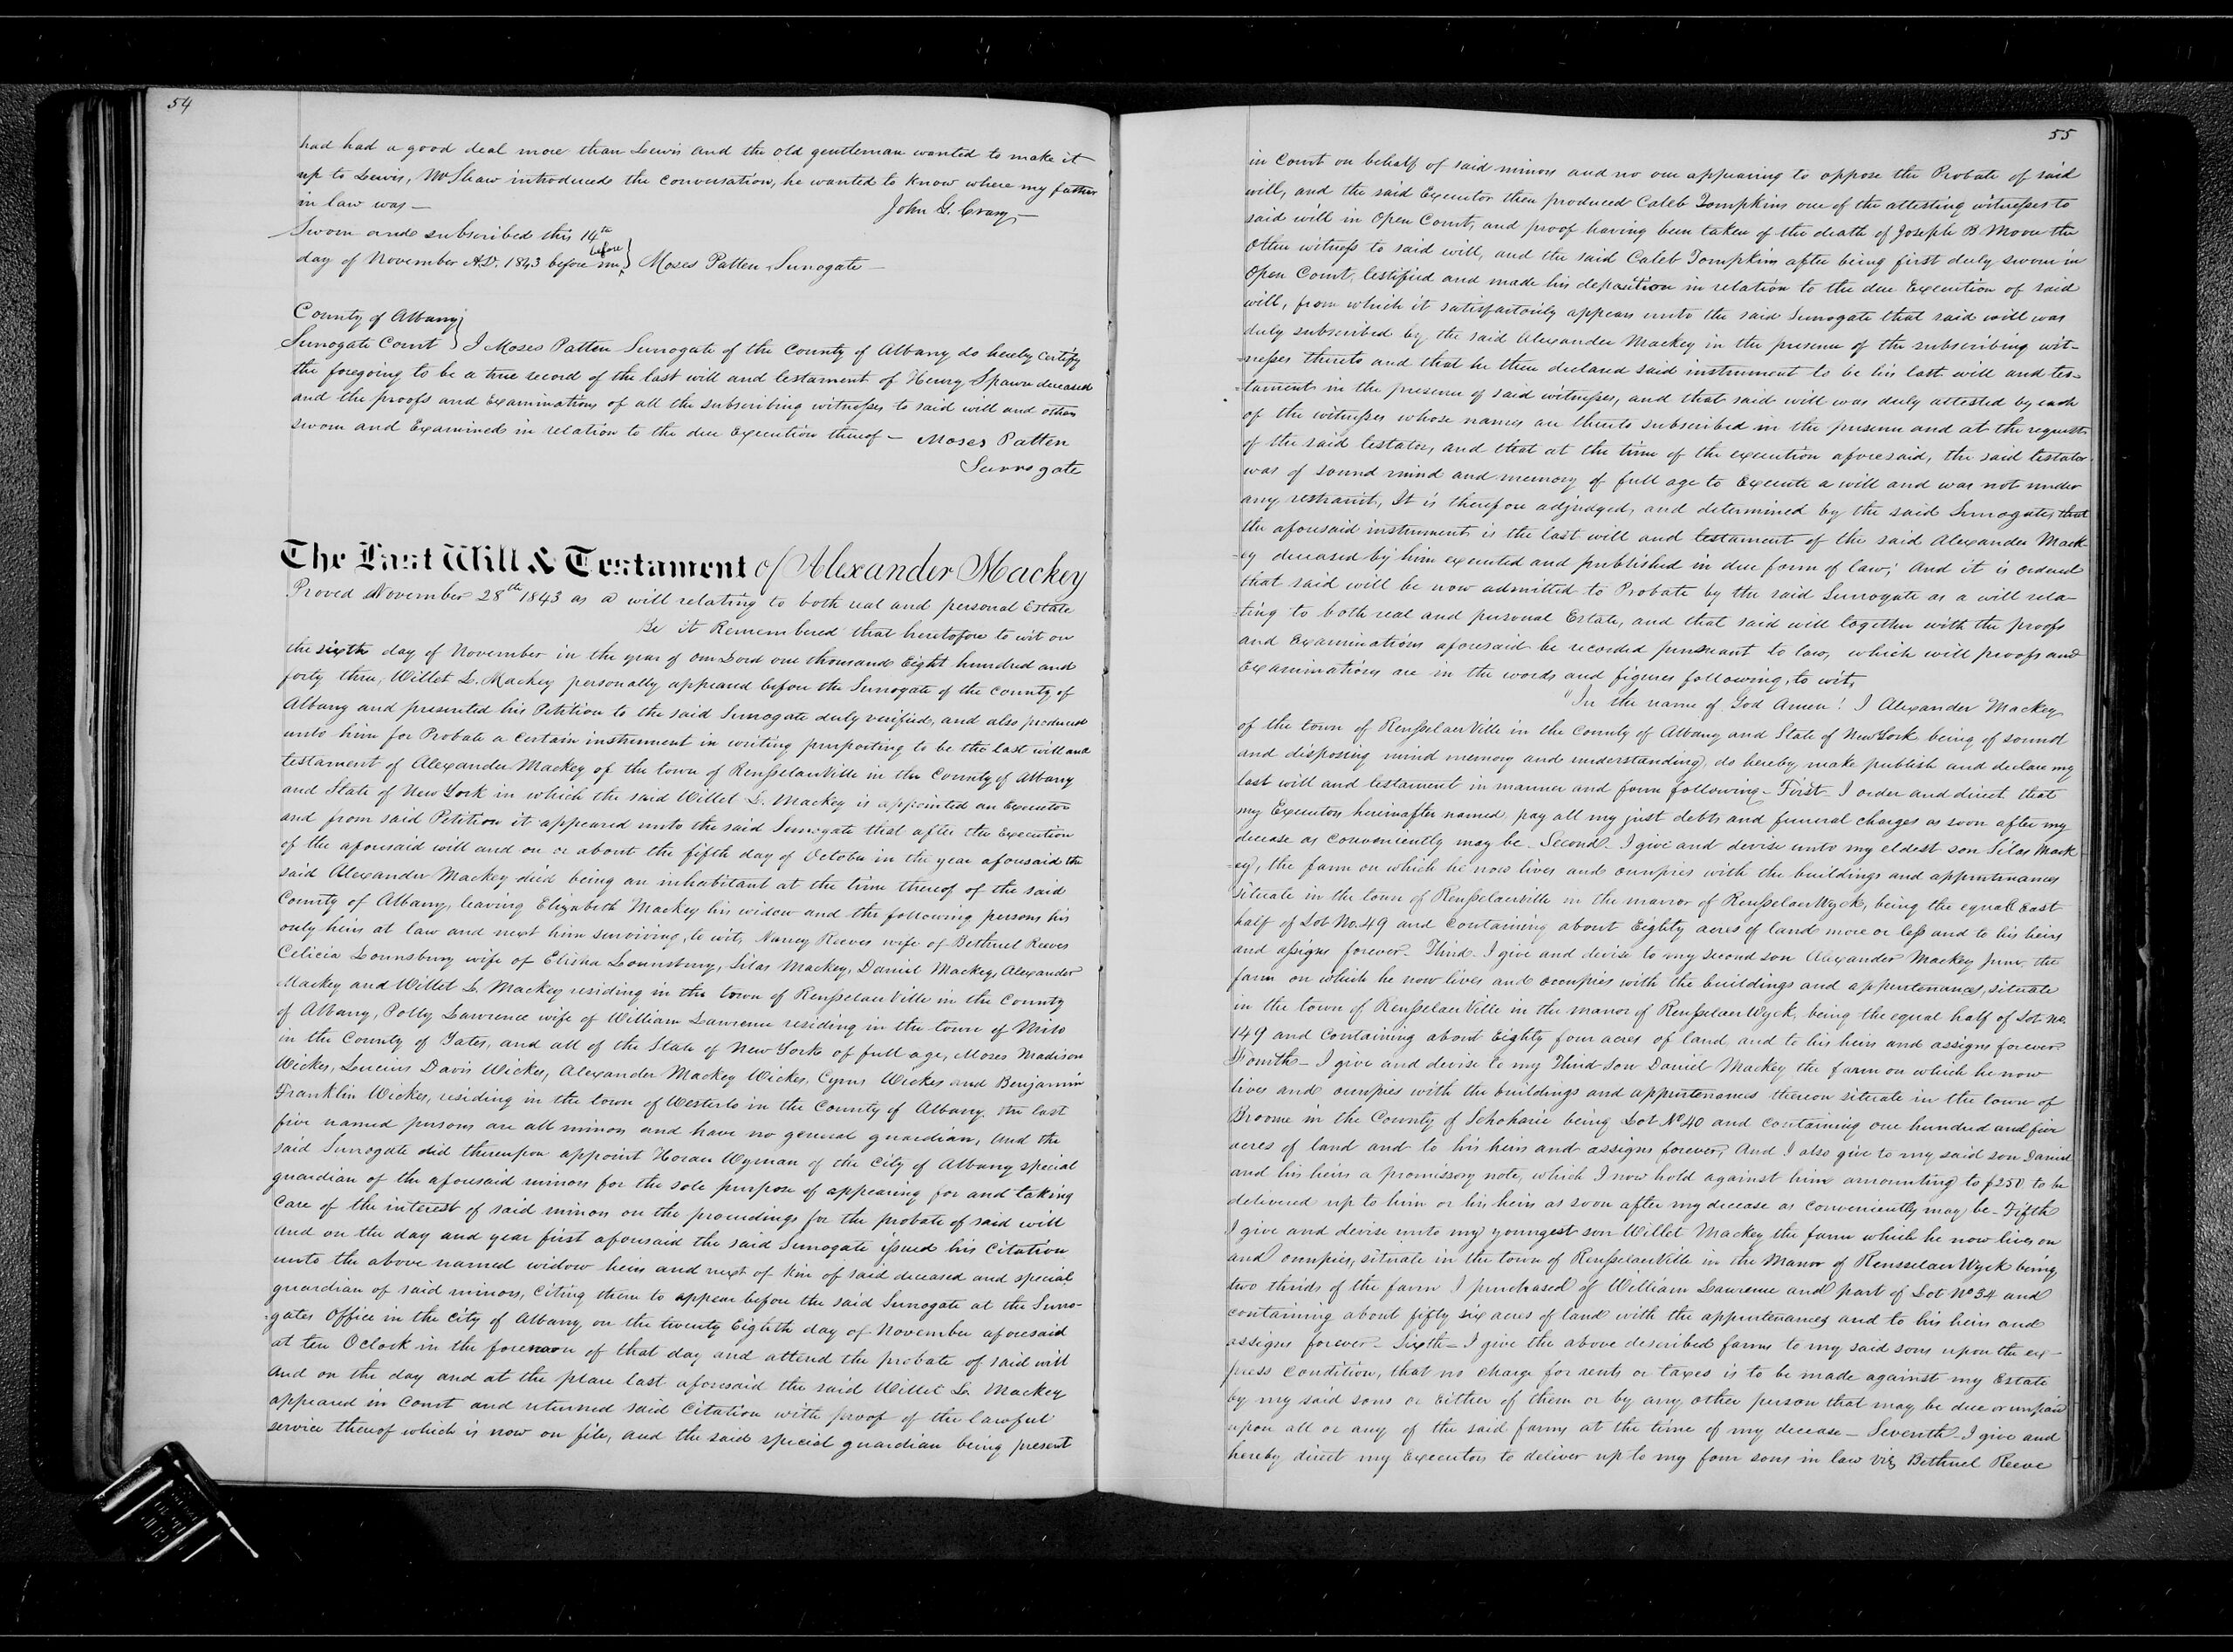 54
had had a good deal more than Lewis and the old gentleman wanted to make it
up to Lewis, Mr Shaw introduced the conversation, he wanted to know where my father
in law was —
John G. Crary —
Sworn and subscribed this 14th
before
day of November A.D. 1843 before me } Moses Patten Surrogate —
County of Albany }
Surrogate Court } I Moses Patten Surrogate of the County of Albany do hereby certify
the foregoing to be a true record of the last will and testament of Henry Spawn deceased
and the proofs and Examinations of all the subscribing witnesses to said will and others
sworn and Examined in relation to the due Execution thereof — Moses Patten
Surrogate
The Last Will & Testament of Alexander Mackey
Proved November 28th 1843 as a will relating to both real and personal Estate
Be it Remembered that heretofore to wit on
the sixth day of November in the year of our Lord one thousand Eight hundred and
forty three, Willet L. Mackey personally appeared before the Surrogate of the County of
Albany and presented his Petition to the said Surrogate duly verified, and also produced
unto him for Probate a certain instrument in writing purporting to be the last will and
testament of Alexander Mackey of the town of RensselaerVille in the County of Albany
and State of New York in which the said Willet L. Mackey is appointed an Executor
and from said Petition it appeared unto the said Surrogate that after the Execution
of the aforesaid will and on or about the fifth day of October in the year aforesaid the
said Alexander Mackey died being an inhabitant at the time thereof of the said
County of Albany, leaving Elizabeth Mackey his widow and the following persons his
only heirs at law and next him surviving, to wit, Nancy Reeves wife of Bethuel Reeves
Celicia Lounsbury wife of Elisha Lounsbury, Silas Mackey, Daniel Mackey, Alexander
Mackey and Willet L. Mackey residing in the town of RensselaerVille in the County
of Albany, Polly Lawrence wife of William Lawrence residing in the town of Milo
in the County of Yates, and all of the State of New York of full age, Moses Madison
Wickes, Lucius Davis Wickes, Alexander Mackey Wickes, Cyrus Wickes and Benjamin
Franklin Wickes, residing in the town of Westerlo in the County of Albany. The last
five named persons are all minors and have no general guardian, And the
said Surrogate did thereupon appoint Horace Wyman of the City of Albany special
guardian of the aforesaid minors for the sole purpose of appearing for and taking
care of the interest of said minors on the proceedings for the probate of said will
And on the day and year first aforesaid the said Surrogate issued his Citation
unto the above named widow heirs and next of kin of said deceased and special
guardian of said minors, citing them to appear before the said Surrogate at the Surro-
-gates Office in the City of Albany on the twenty Eighth day of November aforesaid
at ten OClock in the forenoon of that day and attend the probate of said will
And on the day and at the place last aforesaid the said Willet L. Mackey
appeared in Court and returned said Citation with proof of the lawful
service thereof which is now on file, and the said special guardian being present
55
in Court on behalf of said minors and no one appearing to oppose the Probate of said
will, and the said Executor then produced Caleb Tompkins one of the attesting witnesses to
said will in Open Court, and proof having been taken of the death of Joseph B Moore the
other witness to said will, and the said Caleb Tompkins after being first duly sworn in
Open Court, testified and made his deposition in relation to the due Execution of said
will, from which it satisfactorily appears unto the said Surrogate that said will was
duly subscribed by the said Alexander Mackey in the presence of the subscribing wit-
-nesses thereto and that he then declared said instrument to be his last will and tes-
-tament in the presence of said witnesses, and that said will was duly attested by each
of the witnesses whose names are thereto subscribed in the presence and at the request
of the said testator, and that at the time of the execution aforesaid, the said testator
was of sound mind and memory of full age to Execute a will and was not under
any restraint, It is therefore adjudged, and determined by the said Surrogate, that
the aforesaid instrument is the last will and testament of the said Alexander Mack-
-ey deceased by him executed and published in due form of law; And it is ordered
that said will be now admitted to Probate by the said Surrogate as a will rela-
-ting to both real and personal Estate, and that said will together with the proofs
and Examinations aforesaid be recorded pursuant to law, which will proofs and
Examinations are in the words and figures following, to wit,
"In the name of God Amen! I Alexander Mackey
of the town of RensselaerVille in the County of Albany and State of New York being of sound
and disposing mind memory and understanding, do hereby, make publish and declare my
last will and testament in manner and form following — First — I order and direct that
my Executors hereinafter named, pay all my just debts and funeral charges as soon after my
decease as conveniently may be — Second — I give and devise unto my eldest son Silas Mack
-ey, the farm on which he now lives and occupies with the buildings and appurtenances
situate in the town of Rensselaerville in the manor of RensselaerWyck, being the equal East
half of Lot No. 49 and containing about Eighty acres of land more or less and to his heirs
and assigns forever — Third — I give and devise to my second son Alexander Mackey Junr. the
farm on which he now lives and occupies with the buildings and appurtenances, situate
in the town of RensselaerVille in the manor of RensselaerWyck, being the equal half of Lot no.
149 and containing about Eighty four acres of land and to his heirs and assigns forever
Fourth — I give and devise to my Third Son Daniel Mackey the farm on which he now
lives and occupies with the buildings and appurtenances thereon situate in the town of
Broome in the County of Schoharie being Lot No 40 and containing one hundred and five
acres of land and to his heirs and assigns forever, And I also give to my said son Daniel
and his heirs a promissory note, which I now hold against him amounting to $250 to be
delivered up to him or his heirs as soon after my decease as conveniently may be — Fifth
I give and devise unto my youngest son Willet Mackey the farm which he now lives on
and occupies, situate in the town of RensselaerVille in the Manor of RensselaerWyck being
two thirds of the farm I purchased of William Lawrence and part of Lot No 34 and
containing about fifty six acres of land with the appurtenances and to his heirs and
assigns forever — Sixth — I give the above described farms to my said sons upon the ex-
press Condition, that no charge for rents or taxes is to be made against my Estate
by my said sons or Either of them or by any other person that may be due or unpaid
upon all or any of the said farms at the time of my decease — Seventh — I give and
hereby direct my Executors to deliver up to my four sons in law viz Bethuel Reeve